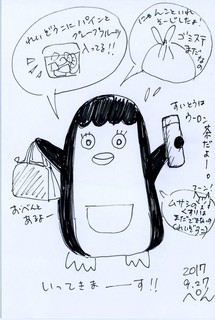 れいぞうこにパインと
グレープフルーツ
入ってる!!
にゃんこといれ
そーじしたよ!
ゴミステ
まだ
なの
すいとうは
ウーロン
茶だよー!。
おべんと
あるよー
ムサシの
くすりは
まだです
いってきまーす!!
2017
9.27
ぺろん